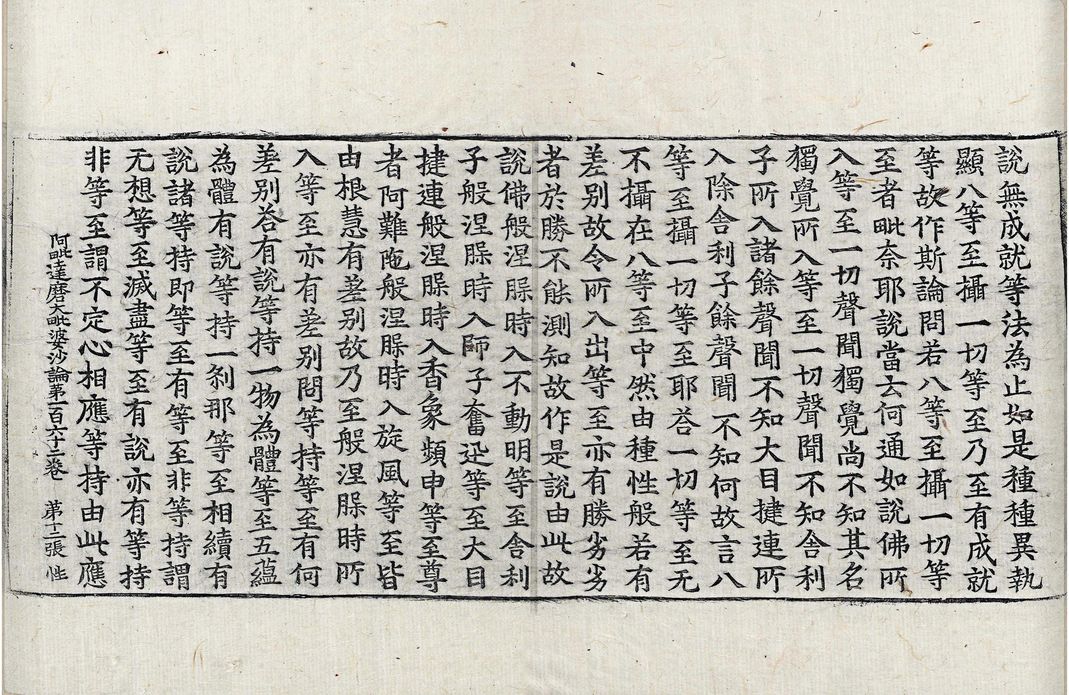 說無成就等法為止如是種種異執
顯八等至攝一切等至乃至有成就
等故作斯論問若八等至攝一切等
至者毗奈耶說當云何通如說佛所
入等至一切聲聞獨覺尚不知其名
獨覺所入等至一切聲聞不知舍利
子所入諸餘聲聞不知大目揵連所
入除舍利子餘聲聞不知何故言八
等至攝一切等至耶荅一切等至无
不攝在八等至中然由種性般若有
差別故令所入出等至亦有勝劣劣
者於勝不能測知故作是說由此故
說佛般涅槃時入不動明等至舍利
子般涅槃時入師子奮迅等至大目
揵連般涅槃時入香象頻申等至尊
者阿難陁般涅槃時入旋風等至皆
由根慧有差別故乃至般涅槃時所
入等至亦有差別問等持等至有何
差別荅有說等持一物為體等至五蘊
為體有說等持一剎那等至相續有
說諸等持即等至有等至非等持謂
无想等至滅盡等至有說亦有等持
非等至謂不定心相應等持由此應
阿毗達磨大毗婆沙論第一百六十二卷 第十二張 性